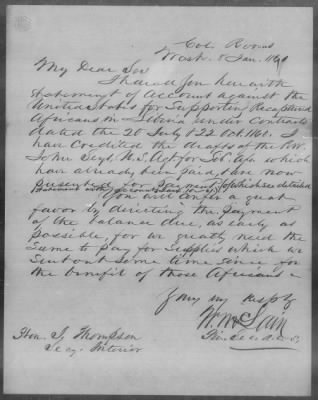 Col. Rooms
Wash. 8 Jan. 1861
My Dear Sir
I hand you herewith
Statement of Account against the
United States for Supporting Recaptured
Africans in Liberia under Contracts
dated the 20 July & 22 Oct. 1860. I
have Credited the drafts of the Rev.
John Seys U.S. Agt for Lib. Afn which
have already been paid, & are now
presented for payment, of which see detailed
You will confer a great
favor by directing the payment
of the balance due, as early as
possible, for we greatly need the
Same to pay for Supplies which we
Sent out some time since for
the benefit of those Africans -
Yours very resply
W. McLain
Fin. Sec.
Hon. J. Thompson
Secy. Interior